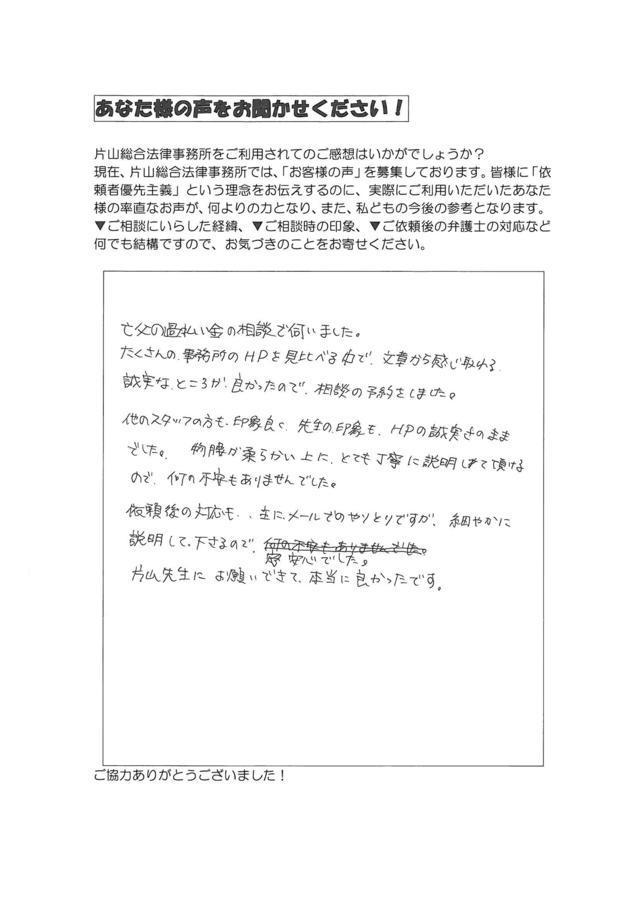 あなた様の声をお聞かせください！
片山総合法律事務所をご利用されてのご感想はいかがでしょうか？
現在、片山総合法律事務所では、「お客様の声」を募集しております。皆様に「依
頼者優先主義」という理念をお伝えするのに、実際にご利用いただいたあなた
様の率直なお声が、何よりの力となり、また、私どもの今後の参考となります。
▼ご相談にいらした経緯、▼ご相談時の印象、▼ご依頼後の弁護士の対応など
何でも結構ですので、お気づきのことをお寄せください。
亡父の過払い金の相談で伺いました。
たくさんの、事務所のHPを見比べる中で、文章から感じ取れる
誠実な、ところが、良かったので、相談の予約をしました。
他のスタッフの方も、印象良く、先生の、印象も、HPの誠実さのまま
でした。 物腰が柔らかい上に、とても丁寧に説明して頂ける
ので、何の不安もありませんでした。
依頼後の対応も、主にメールでのやりとりですが、細やかに
説明して下さるので、何の不安もありませんでした。
安心でした。
片山先生に お願いできて、本当に良かったです。
ご協力ありがとうございました！